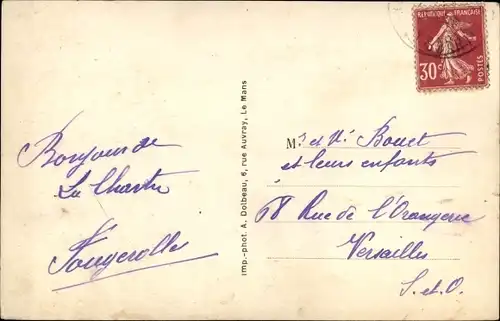 RÉPUBLIQUE FRANÇAISE
30c
POSTES
Bonjour de
La Chartre
Fougerolles
Imp.-phot. A. Dolbeau, 6, rue Auvray, Le Mans
Mr et Me Bouet
et leurs enfants
68 Rue de l'Orangerie
Versailles
S. et. O.